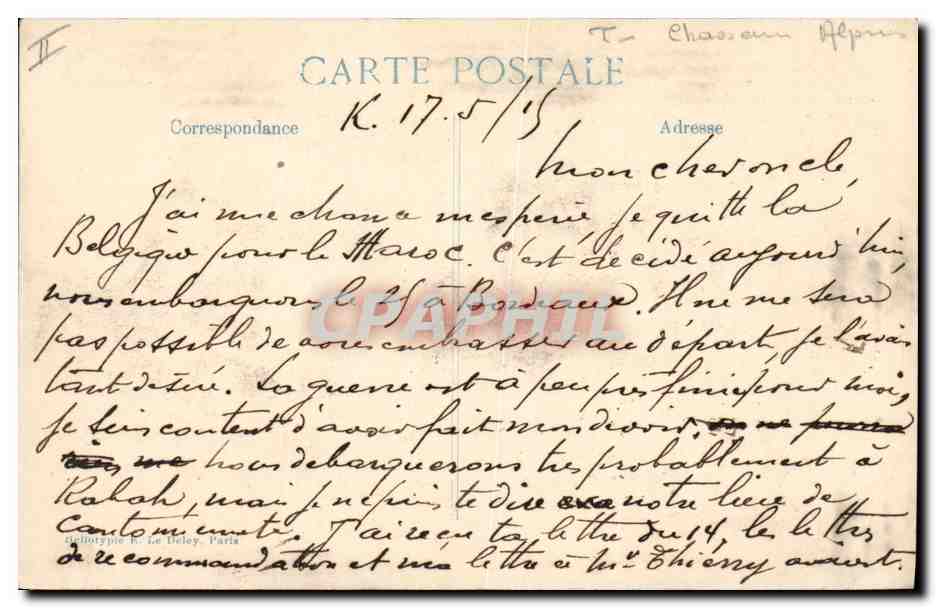 II
T- Chasseurs Alpins
CARTE POSTALE
K. 17.5/15
Correspondance Adresse
Mon cher oncle,
J'ai une chance je quitte la
Belgique pour le Maroc. C'est décidé aujourd'hui,
nous embarquons le 25 à Bordeaux. Il ne me sera
pas possible de vous embrasser au départ, je l'avais
tant désiré. La guerre est à peu près finie pour moi,
je suis content d'avoir fait mon devoir. ne pourra
me nous débarquerons très probablement à
Rabah, mais je ne puis te dire notre lieu de
cantonnement. J'ai reçu ta lettre du 14, les lettres
Heliotypie E. Le Deley, Paris
de recommandation et ma lettre à Mr Thierry
CPAPHIL